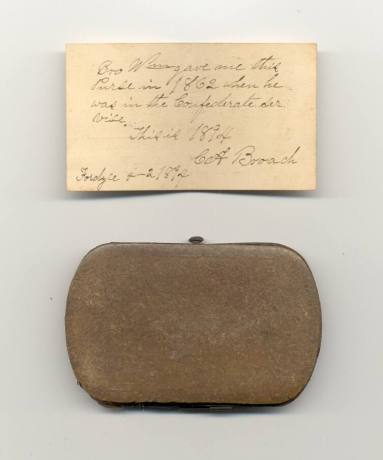 Bro Wm gave me this
Purse in 1862 when he
was in the Confederate Ser
vice.
This is 1894
CA Broach
Fordyce 2 1892